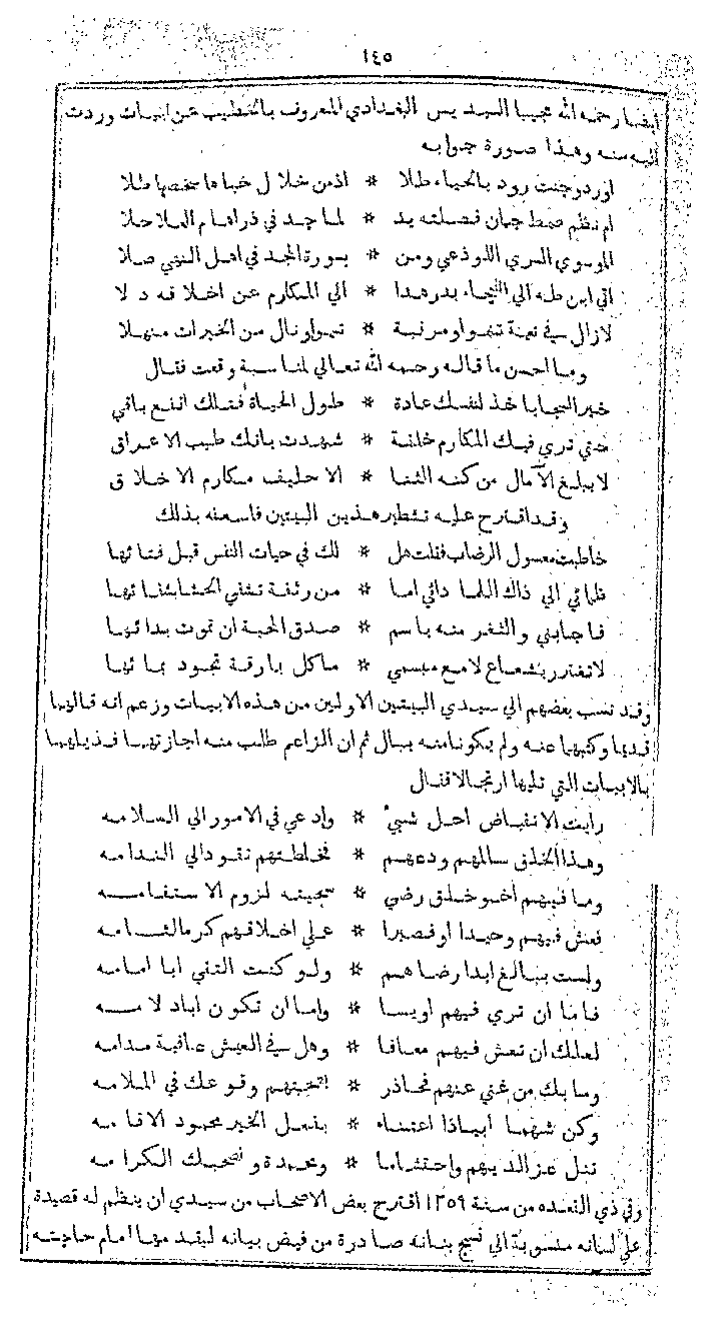 ١٤٥
ايضا رحمه الله مجيبا السيد يس البغدادي المعروف بالخطيب عن ابيات وردت
اليه منه وهذا صورة جوابه
اورد وجنت رود بالحياء طلا * اذ من خلال خباها شخصها طلا
ام نظم سمط جمان فصلته يد * لما جد في ذراهام العلا حلا
الموسوي السري اللوذعي ومن * بسورة المجد في اهل النهي صلا
اتي ابن طه الي البدر هدا * الي المكارم عن اخلاقه دلا
لازال في نعمة تنمو او مرتبة * تسموا ونال من الخيرات منهلا
وما احسن ما قاله رحمه الله تعالي لمناسبة وقعت فقال
خير السجايا خذ لنفسك عادة * طول الحياة فتالك انفع باقي
حتي تري فيك المكارم خلقة * شهدت بانك طيب الاعراق
لا يبلغ الآمال من كنه الثنا * الا حليف مكارم الاخلاق
وقد اقترح عليه تشطير هذين البيتين فاسعفه بذلك
خاطبت معسول الرضاب فقلت هل * لك في حيات النفس قبل فنائها
ظمائي الي ذاك اللما دائي اما * من رشفة تشفي الحشا بشفائها
فاجابني والثغر منه باسم * صدق المحبة ان تموت بدائها
لا تغترر بشعاع لامع مبسمي * ما كل بارقة تجود بمائها
وقد نسب بعضهم الي سيدي البيتين الاولين من هذه الابيات وزعم انه قالهما
قديما وكتبهما عنه ولم يكونا منه ببال ثم ان الزاعم طلب منه اجازتهما فذيلهما
بالابيات التي تليها ارتجالا فقال
رايت الانقباض احل شيئ * وادعي في الامور الي السلامه
وهذا الخلق سالمهم ودعهم * فخلطتهم تقود الي الندامه
وما فيهم اخو خلق رضي * سجيته لزوم الاستقامه
فعش فيهم وحيدا او فصبرا * علي اخلاقهم كرما لشامه
ولست ببالغ ابدا رضاهم * ولو كنت التقي ابا امامه
فاما ان تري فيهم اويسا * واما ان تكون اباد لامه
لعلك ان تعش فيهم معافا * وهل في العيش عافية مدامه
وما بك من غني عنهم فحاذر * بصحبتهم وقوعك في الملامه
وكن شهما ابياذا اعتناء * بفعل الخير محمود الاقامه
تنل عزا لديهم واحتشاما * ومحمدة وتصحبك الكرامه
وفي ذي القعده من سنة ١٢٥٩ اقترح بعض الاصحاب من سيدي ان ينظم له قصيدة
علي لسانه منسوبة الي نسيج بنانه صادرة من فيض بيانه ليقدمها امام حاجته